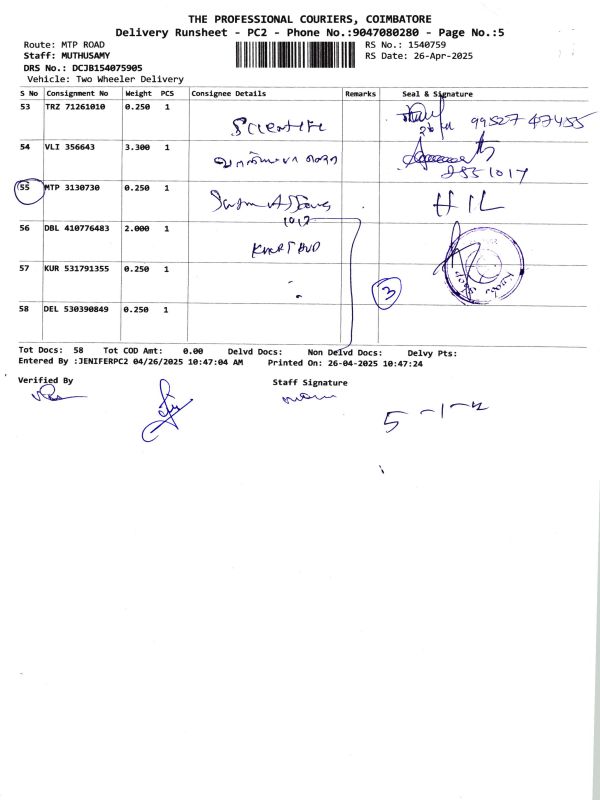 THE PROFESSIONAL COURIERS, COIMBATORE
Delivery Runsheet - PC2 - Phone No.:9047080280 - Page No.:5
Route: MTP ROAD
RS No.: 1540759
Staff: MUTHUSAMY
RS Date: 26-Apr-2025
DRS No.: DCJB154075905
Vehicle: Two Wheeler Delivery
S No Consignment No Weight PCS Consignee Details Remarks Seal & Signature
53 TRZ 71261010 0.250 1 Scientific 99527 47455
54 VLI 356643 3.300 1
55 MTP 3130730 0.250 1 HIL
56 DBL 410776483 2.000 1
57 KUR 531791355 0.250 1
3
58 DEL 530390849 0.250 1
Tot Docs: 58 Tot COD Amt: 0.00 Delvd Docs: Non Delvd Docs: Delvy Pts:
Entered By :JENIFERPC2 04/26/2025 10:47:04 AM Printed On: 26-04-2025 10:47:24
Verified By
Staff Signature